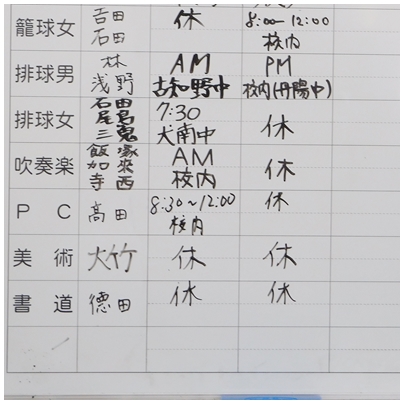 籠球女 吉田 石田 休 8:00-12:00 校内
排球男 林 浅野 AM 古知野中 PM 校内(丹陽中)
排球女 石田 尾畠 三鬼 7:30 犬南中 休
吹奏楽 飯塚 加來 寺西 AM 校内 休
PC 高田 8:30~12:00 校内 休
美術 大竹 休 休
書道 德田 休 休